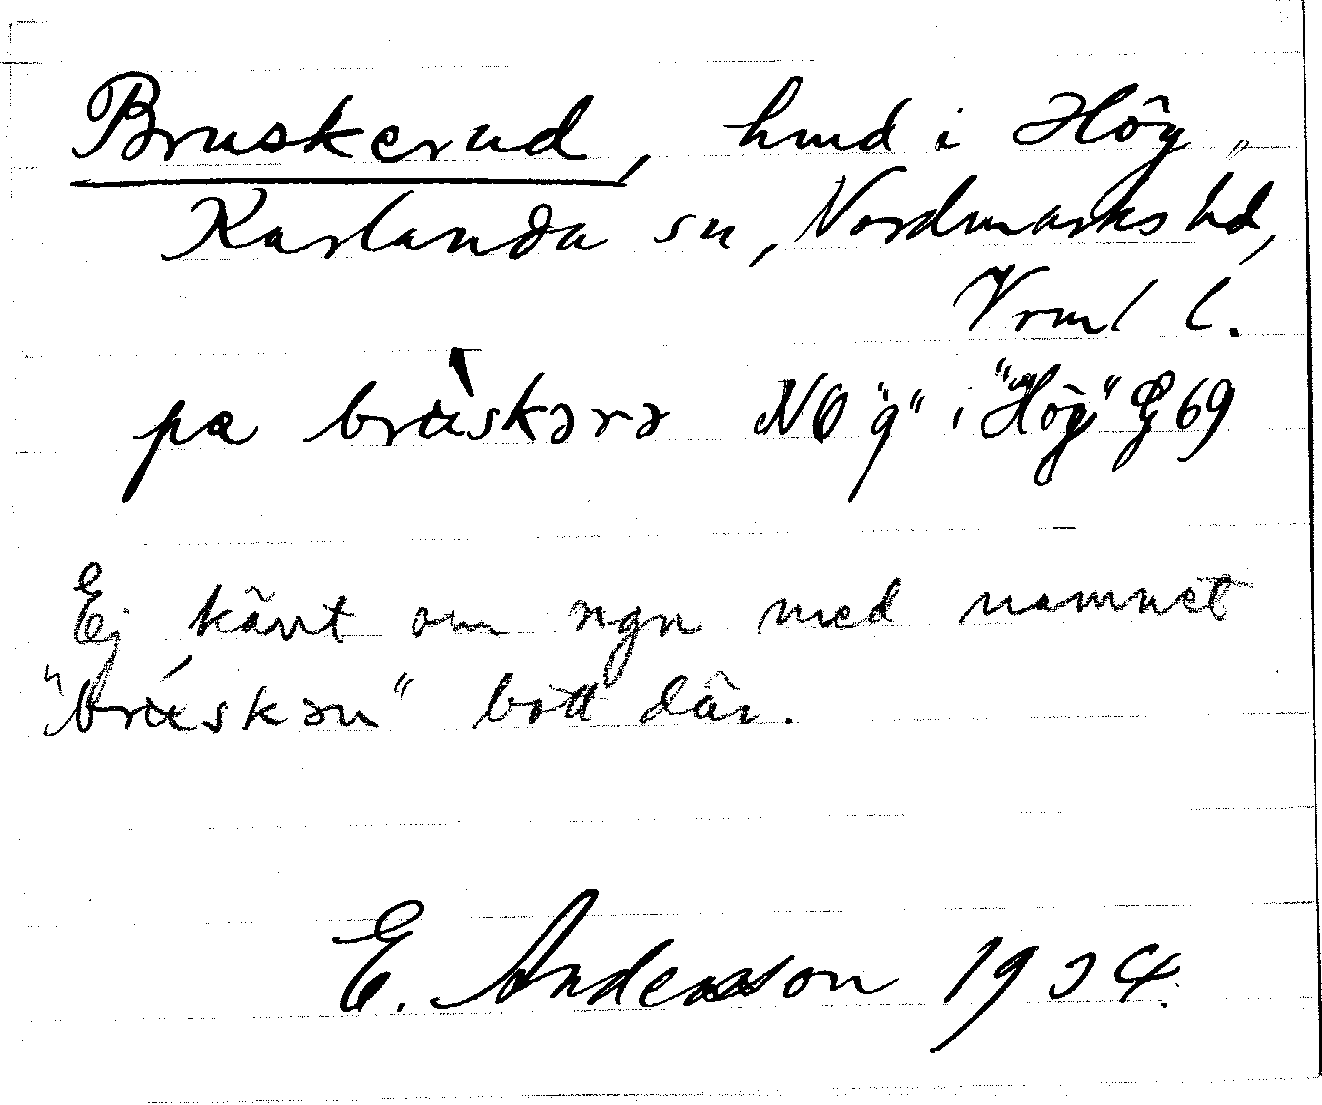 Bruskerud, hmd i Hög,
Karlanda sn, Nordmarks hd,
Vrml l.
pa brùskərə NO "g" i "Hög" 69
Ej känt om ngn med namnet
"brúskən" bott där.
E. Andersson 1934.